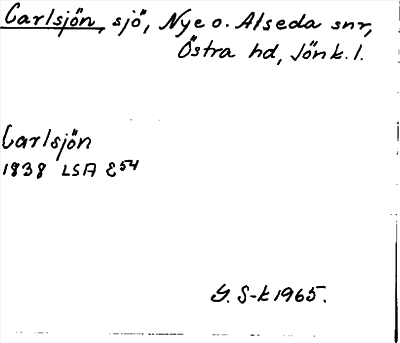 Carlsjön, sjö, Nye o. Alseda snr,
Östra hd, Jönk. l.
Carlsjön
1838 LSA E54
G. S-k 1965.